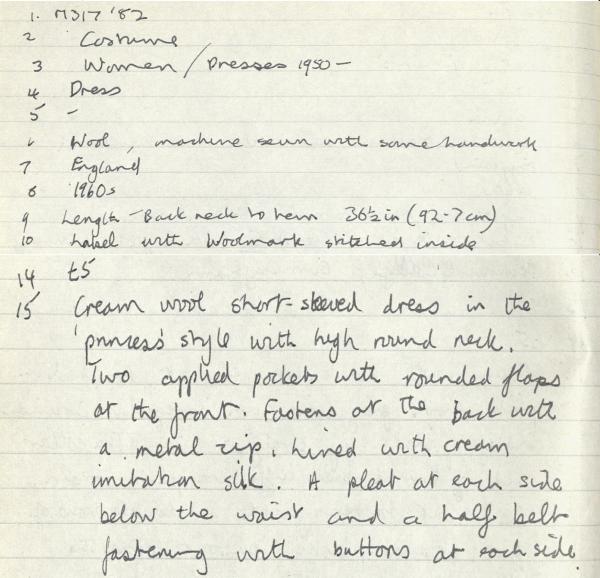 1. M317 '82
2 Costume
3 Women / Dresses 1950 -
4 Dress
5 -
6 Wool, machine sewn with some handwork
7 England
8 1960s
9 Length - Back neck to hem 36½in (92.7cm)
10 Label with Woolmark stitched inside
14 £5
15 Cream wool short-sleeved dress in the
'princess' style with high round neck.
Two applied pockets with rounded flaps
at the front. Fastens at the back with
a metal zip. Lined with cream
imitation silk. A pleat at each side
below the waist and a half belt
fastening with buttons at each side.